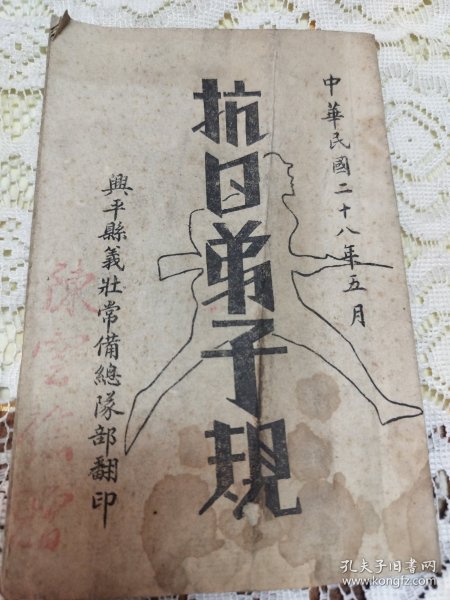 中華民國二十八年五月
抗日弟子規
興平縣義壯常備總隊部翻印
孔夫子旧书网
www.kongfz.com